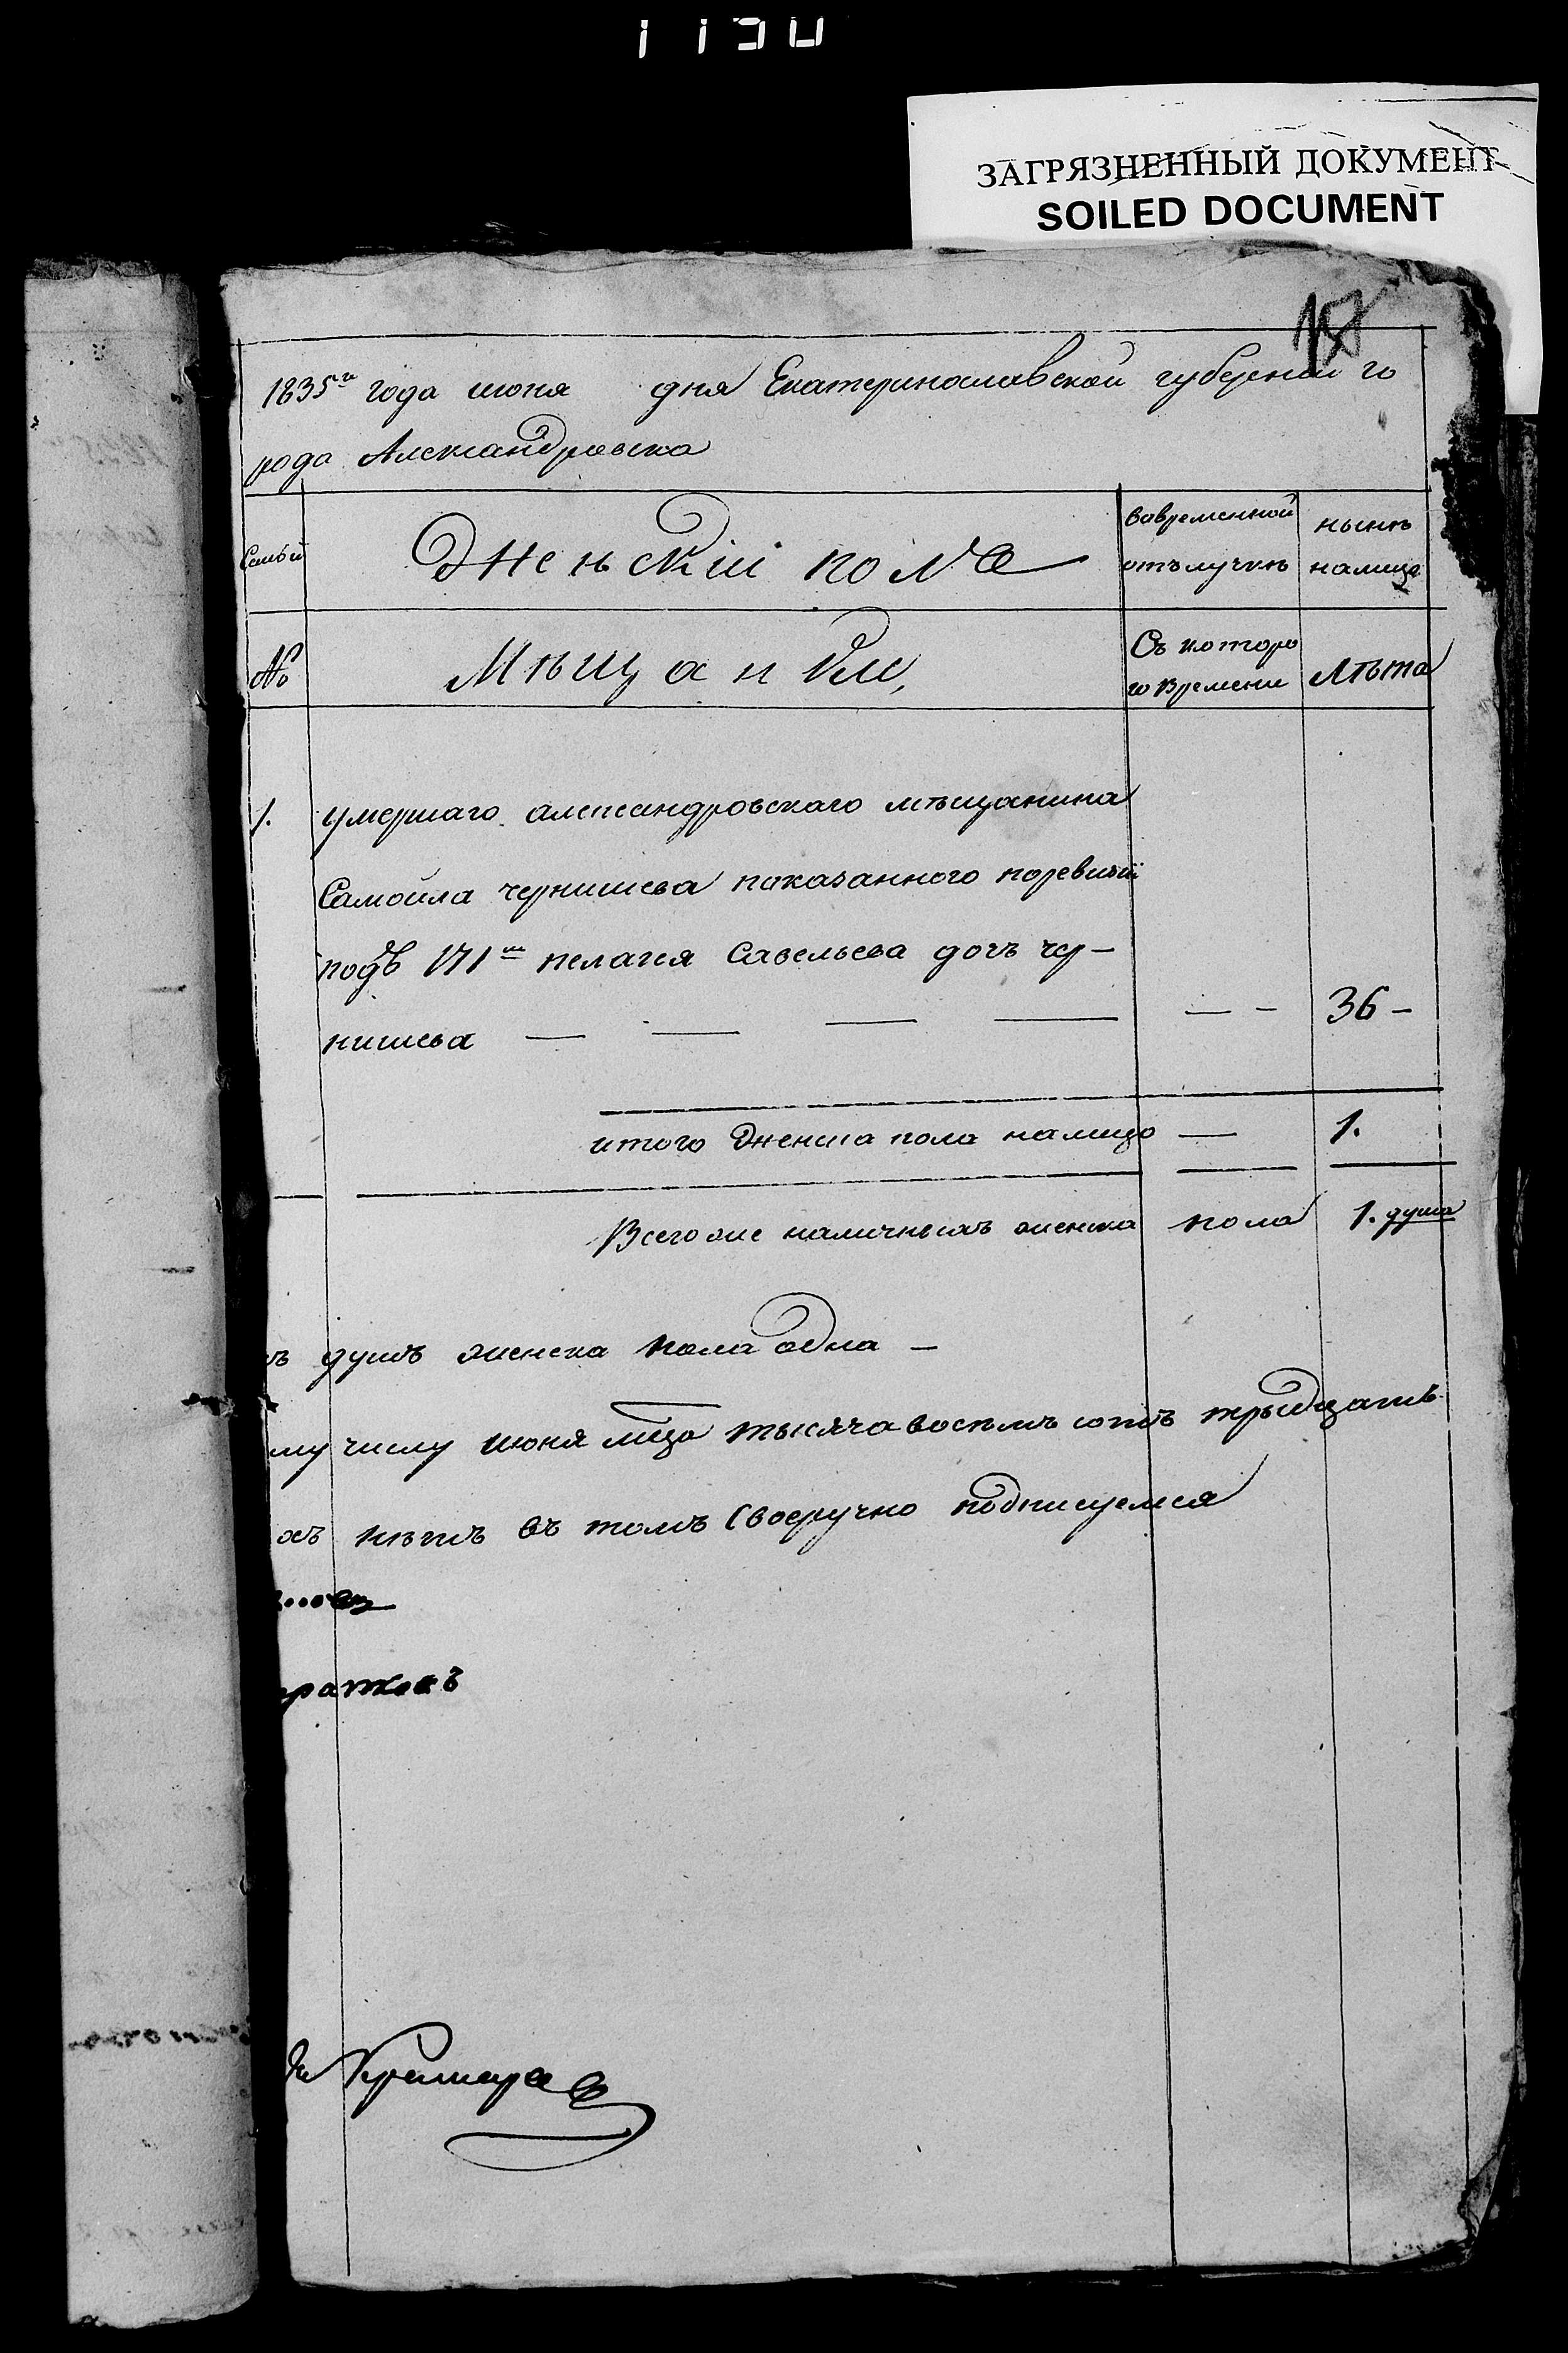 1130
ЗАГРЯЗНЕННЫЙ ДОКУМЕНТ
SOILED DOCUMENT
1835го года июня дня Екатеринославской губернии го
рода Александровска
Семьи
Женьский полъ
вовременной
отълучкѣ
нынѣ
налицо
№
Мѣщанки,
Съ которо
го времени
лѣта
1. умершаго александровскаго мѣщанина
Самойла чернишева показанного поревизіи
подъ 171м пелагея Савельева дочъ чер-
нишева — — — — — - 36 -
итого женска пола налицо — 1.
Всего же наличныхъ женска пола 1. душа
ъ душъ женска пола одна —
му числу июня мца тысяча восемъ сотъ трыдцать
хъ нѣтъ въ томъ своеручно подписуемся